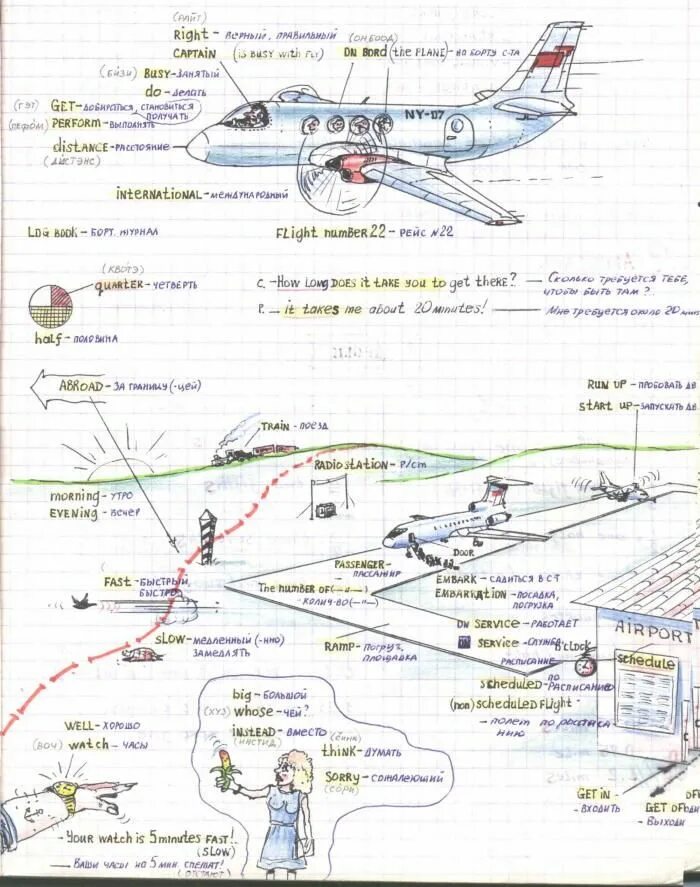 (РАЙТ)
Right - верный, правильный
(ОН БООД)
CAPTAIN (is BUSY with FLY) ON BORD (the PLANE) - на борту с-та
(БИЗИ) BUSY - ЗАНЯТЫЙ
do - делать
(ГЭТ) GET - добираться, становиться
получать
(ПЕФОМ) PERFORM - выполнять
distance - расстояние
(ДИСТЭНС)
NY-117
INTERNATIONAL - международный
LOG BOOK - БОРТ. ЖУРНАЛ
FLight number 22 - РЕЙС №22
(КВОТЭ)
quarter - четверть
half - половина
C. - How Long DOES it tAKE you to get there? - Сколько требуется тебе,
чтобы быть там?
P. - it takes me about 20 minutes! - Мне требуется около 20 мин
ABROAD - за границу (-цей)
RUN UP - пробовать дв
START UP - запускать дв.
TRAIN - поезд
RADIOSTATION - Р/ст
morning - утро
EVENING - вечер
DOOR
PASSENGER -
- пассажир
FAST - быстрый,
быстро
The number of (-"-)
- колич-во (-"-)
EMBARK - садиться в с-т
EMBARKATION - посадка,
погрузка
ON SERVICE - работает
SERVICE - служба
SLOW - медленный (-нно)
замедлять
RAMP - погруз.
площадка
AIRPORT
O'CLOCK
расписание
schedule
scheduled - по
расписанию
(non) scheduled flight -
- полет по расписа-
нию
big - большой
(ХУЗ) whose - чей?
INSTEAD - вместо
(ИНСТИД)
(СИНК)
think - думать
SORRY - сожалеющий
(СОРИ)
WELL - хорошо
(ВОЧ) watch - часы
GET IN -
- входить
GET OFF
- выходи
- YOUR WATCH IS 5 minutes FAST!
(SLOW)
- Ваши часы на 5 мин. спешат!
(отстают)